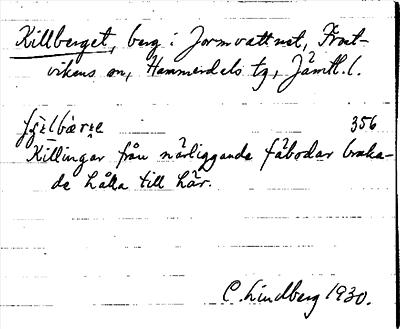 Killberget, berg i Jormvattnet, Frost-
vikens sn, Hammerdals tg, Jämtl. l.
356
Killingar från närliggande fäbodar bruka-
de hålla till här.
C. Lindberg 1930.